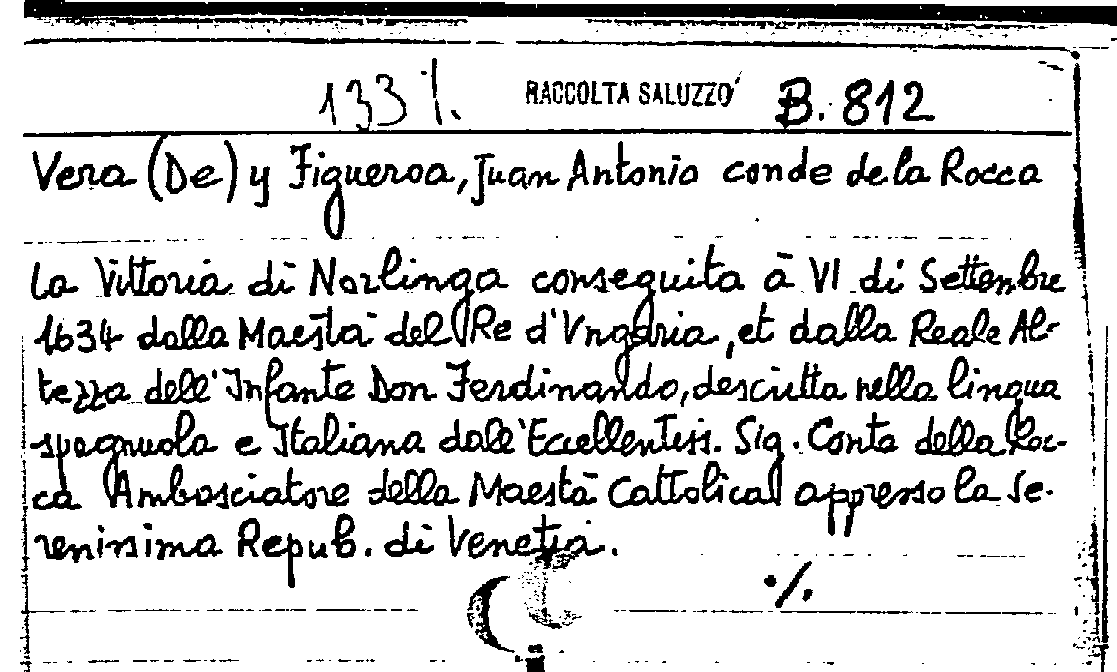 133 /. RACCOLTA SALUZZO B. 812
Vera (De) y Figueroa, Juan Antonio conde de la Rocca
La Vittoria di Norlinga conseguita à VI di Settenbre
1634 dalla Maestà del Re d'Vngaria, et dalla Reale Al-
tezza dell'Infante Don Ferdinando, descritta nella lingua
spagnuola e Italiana dall'Eccellentiss. Sig. Conte della Roc-
ca Ambasciatore della Maestà Cattolica appresso la Se-
renissima Repub. di Venetia.
./.